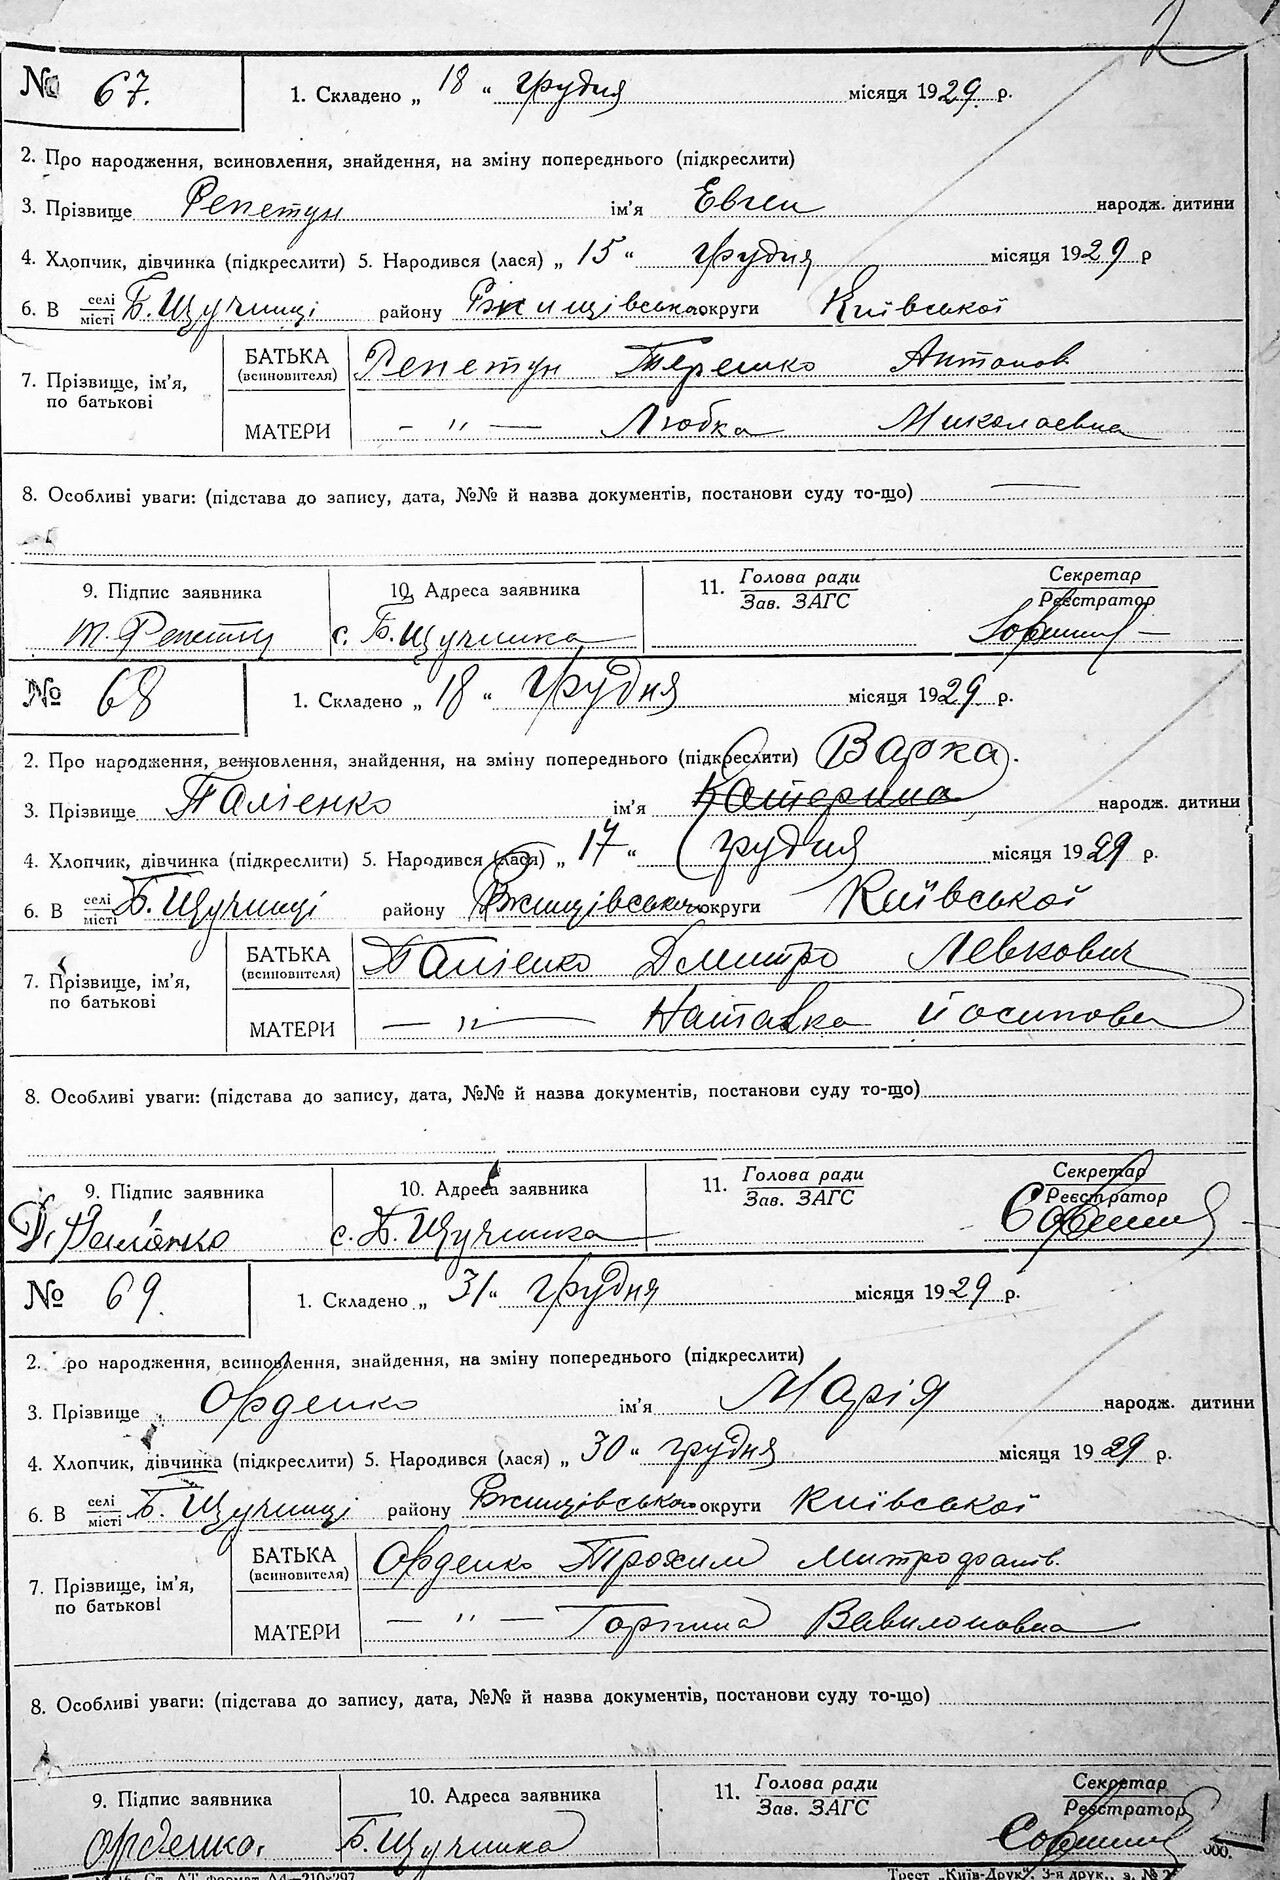 № 67. 1. Складено „ 18 “ грудня місяця 1929. р.
2. Про народження, всиновлення, знайдення, на зміну попереднього (підкреслити)
3. Прізвище Репетун ім’я Евген народж. дитини
4. Хлопчик, дівчинка (підкреслити) 5. Народився (лася) „ 15 “ грудня місяця 1929 р
6. В селі місті Б. Щучинці району Ржищівсько округи Київської
7. Прізвище, ім’я, по батькові БАТЬКА (всиновителя) Репетун Терешко Антонов.
МАТЕРИ — " — Любка Миколаевна
8. Особливі уваги: (підстава до запису, дата, №№ й назва документів, постанови суду то-що) —
9. Підпис заявника 10. Адреса заявника 11. Голова ради Зав. ЗАГС Секретар Реєстратор
Т. Репетун с. Б. Щучинка
№ 68 1. Складено „ 18 “ грудня місяця 1929. р.
2. Про народження, всиновлення, знайдення, на зміну попереднього (підкреслити) Варка.
3. Прізвище Паліенко ім’я Катерина народж. дитини
4. Хлопчик, дівчинка (підкреслити) 5. Народився (лася) „ 17 “ грудня місяця 1929 р.
6. В селі місті Б. Щучинці району Ржищівсько округи Київської
7. Прізвище, ім’я, по батькові БАТЬКА (всиновителя) Паліенко Дмитро Левкович
МАТЕРИ — " — Наталка Йосипова
8. Особливі уваги: (підстава до запису, дата, №№ й назва документів, постанови суду то-що)
9. Підпис заявника 10. Адреса заявника 11. Голова ради Зав. ЗАГС Секретар Реєстратор
Д. Паліенко с. Б. Щучинка
№ 69. 1. Складено „ 31 “ грудня місяця 1929. р.
2. Про народження, всиновлення, знайдення, на зміну попереднього (підкреслити)
3. Прізвище Орденко ім’я Марія народж. дитини
4. Хлопчик, дівчинка (підкреслити) 5. Народився (лася) „ 30 “ грудня місяця 1929 р.
6. В селі місті Б. Щучинці району Ржищівсько округи Київської
7. Прізвище, ім’я, по батькові БАТЬКА (всиновителя) Орденко Трохим Митрофанов.
МАТЕРИ — " — Горпина Вавилоновна
8. Особливі уваги: (підстава до запису, дата, №№ й назва документів, постанови суду то-що)
9. Підпис заявника 10. Адреса заявника 11. Голова ради Зав. ЗАГС Секретар Реєстратор
Орденко. Б. Щучинка
Ст. АТ формат А4—210x297 Трест „Київ-Друк“, 3-я друк., з. №